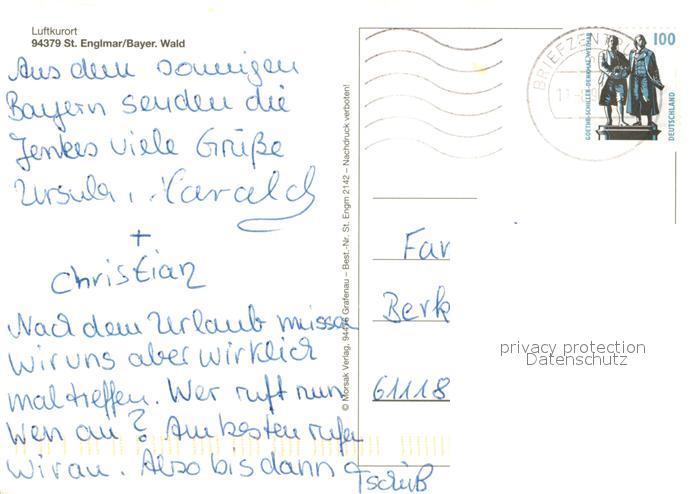 Luftkurort
94379 St. Englmar/Bayer. Wald
Aus dem sonnigen
Bayern senden die
Jenkes viele Grüße
Ursula, Harald
+
Christian
Nach dem Urlaub müssen
wir uns aber wirklich
mal treffen. Wer ruft nun
wen an? Am besten rufen
wir an. Also bis dann
Tschüß
© Morsak Verlag, 94476 Grafenau – Best.-Nr. St. Engm 2142 – Nachdruck verboten!
BRIEFZENTR
GOETHE-SCHILLER-DENKMAL WEIMAR
100
DEUTSCHLAND
Far
Berk
61118
privacy protection
Datenschutz